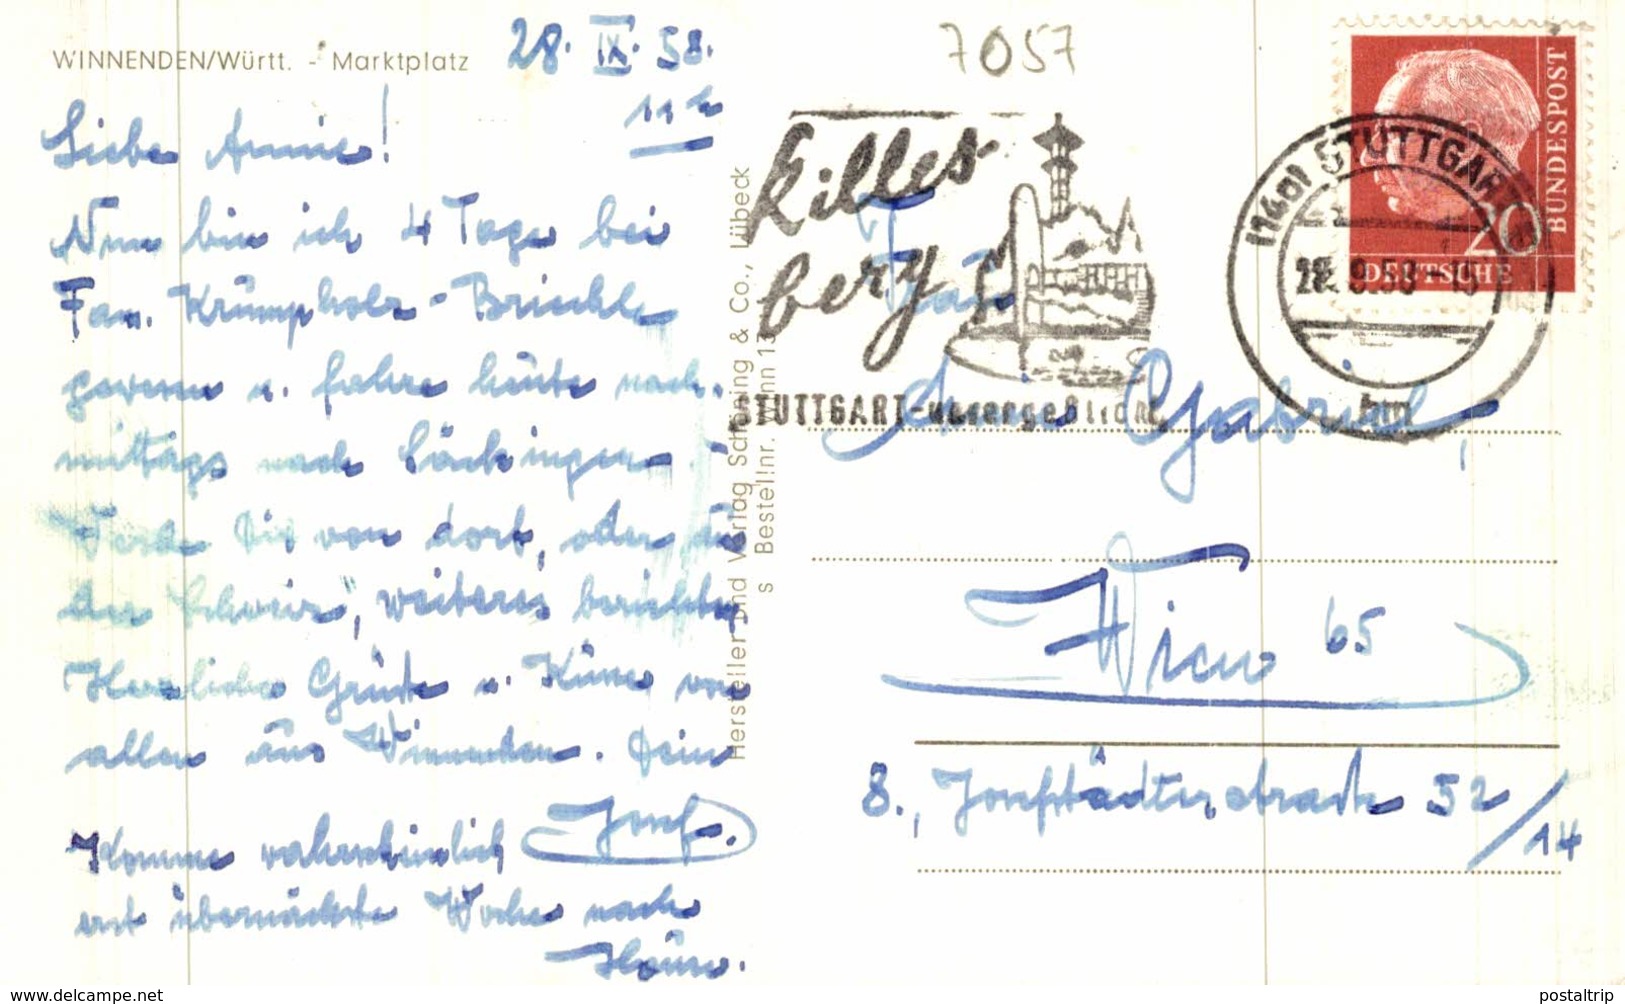 WINNENDEN/Württ. - Marktplatz
28. IX. 58.
11 h
Liebe Annie!
Nun bin ich 4 Tage bei
Fam. Krumpholz-Brischle
gewesen u. fahre heute nach-
mittags nach Säckingen.-
Werde Dir von dort, oder aus
der Schweiz, weiteres berichten.
Herzliche Grüße u. Küsse von
allen aus Winnenden. Dein
Josef.
Komme wahrscheinlich
erst übernächste Woche nach
Hause.
Hersteller und Verlag Schöning & Co., Lübeck
s Bestellnr. Winn 13
7057
Killes-
berg
STUTTGART-unvergeßlich
(14a) STUTTGART
28.9.58-15
hm
DEUTSCHE
BUNDESPOST
20
Frau
Gabriel,
Wien 65
8., Josefstädterstraße 52/14
postaltrip.com
postaltrip